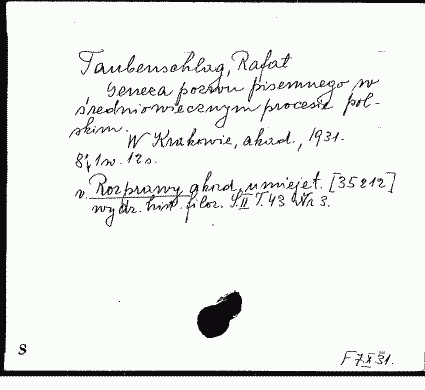 Taubenschlag, Rafał
Geneza pozwu pisemnego w
średniowiecznym procesie pol-
skim.
W Krakowie, akad., 1931.
8°, 1 w. 12 s.
v. Rozprawy akad. umiejęt. [35212]
wydz. hist. filoz. S.II T.43 Nr 3.
S
F 7.X 31.